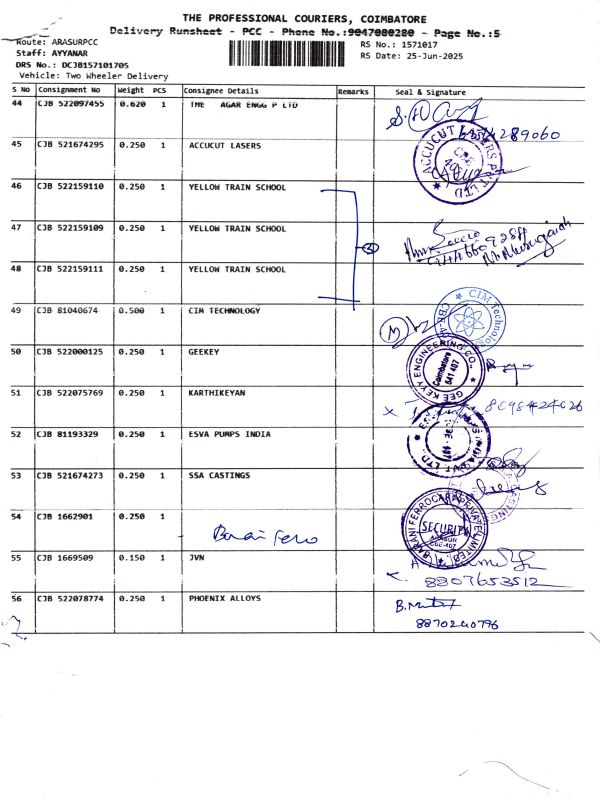 THE PROFESSIONAL COURIERS, COIMBATORE
Delivery Runsheet - PCC - Phone No.:9047080280 - Page No.:5
Route: ARASURPCC
RS No.: 1571017
Staff: AYYANAR
RS Date: 25-Jun-2025
DRS No.: DCJB157101705
Vehicle: Two Wheeler Delivery
S No Consignment No Weight PCS Consignee Details Remarks Seal & Signature
44 CJB 522097455 0.620 1 THE AGAR ENGG P LTD
45 CJB 521674295 0.250 1 ACCUCUT LASERS
46 CJB 522159110 0.250 1 YELLOW TRAIN SCHOOL
47 CJB 522159109 0.250 1 YELLOW TRAIN SCHOOL
48 CJB 522159111 0.250 1 YELLOW TRAIN SCHOOL
49 CJB 81040674 0.500 1 CIM TECHNOLOGY
CIM Technology
50 CJB 522000125 0.250 1 GEEKEY
GEE KEYY ENGINEERING CO.,
Coimbatore
641 407
51 CJB 522075769 0.250 1 KARTHIKEYAN
52 CJB 81193329 0.250 1 ESVA PUMPS INDIA
53 CJB 521674273 0.250 1 SSA CASTINGS
54 CJB 1662901 0.250 1 Barani Ferro
BARANI FERROCAST PRIVATE LIMITED
SECURITY
55 CJB 1669509 0.150 1 JVN
8807653512
56 CJB 522078774 0.250 1 PHOENIX ALLOYS
8870240796